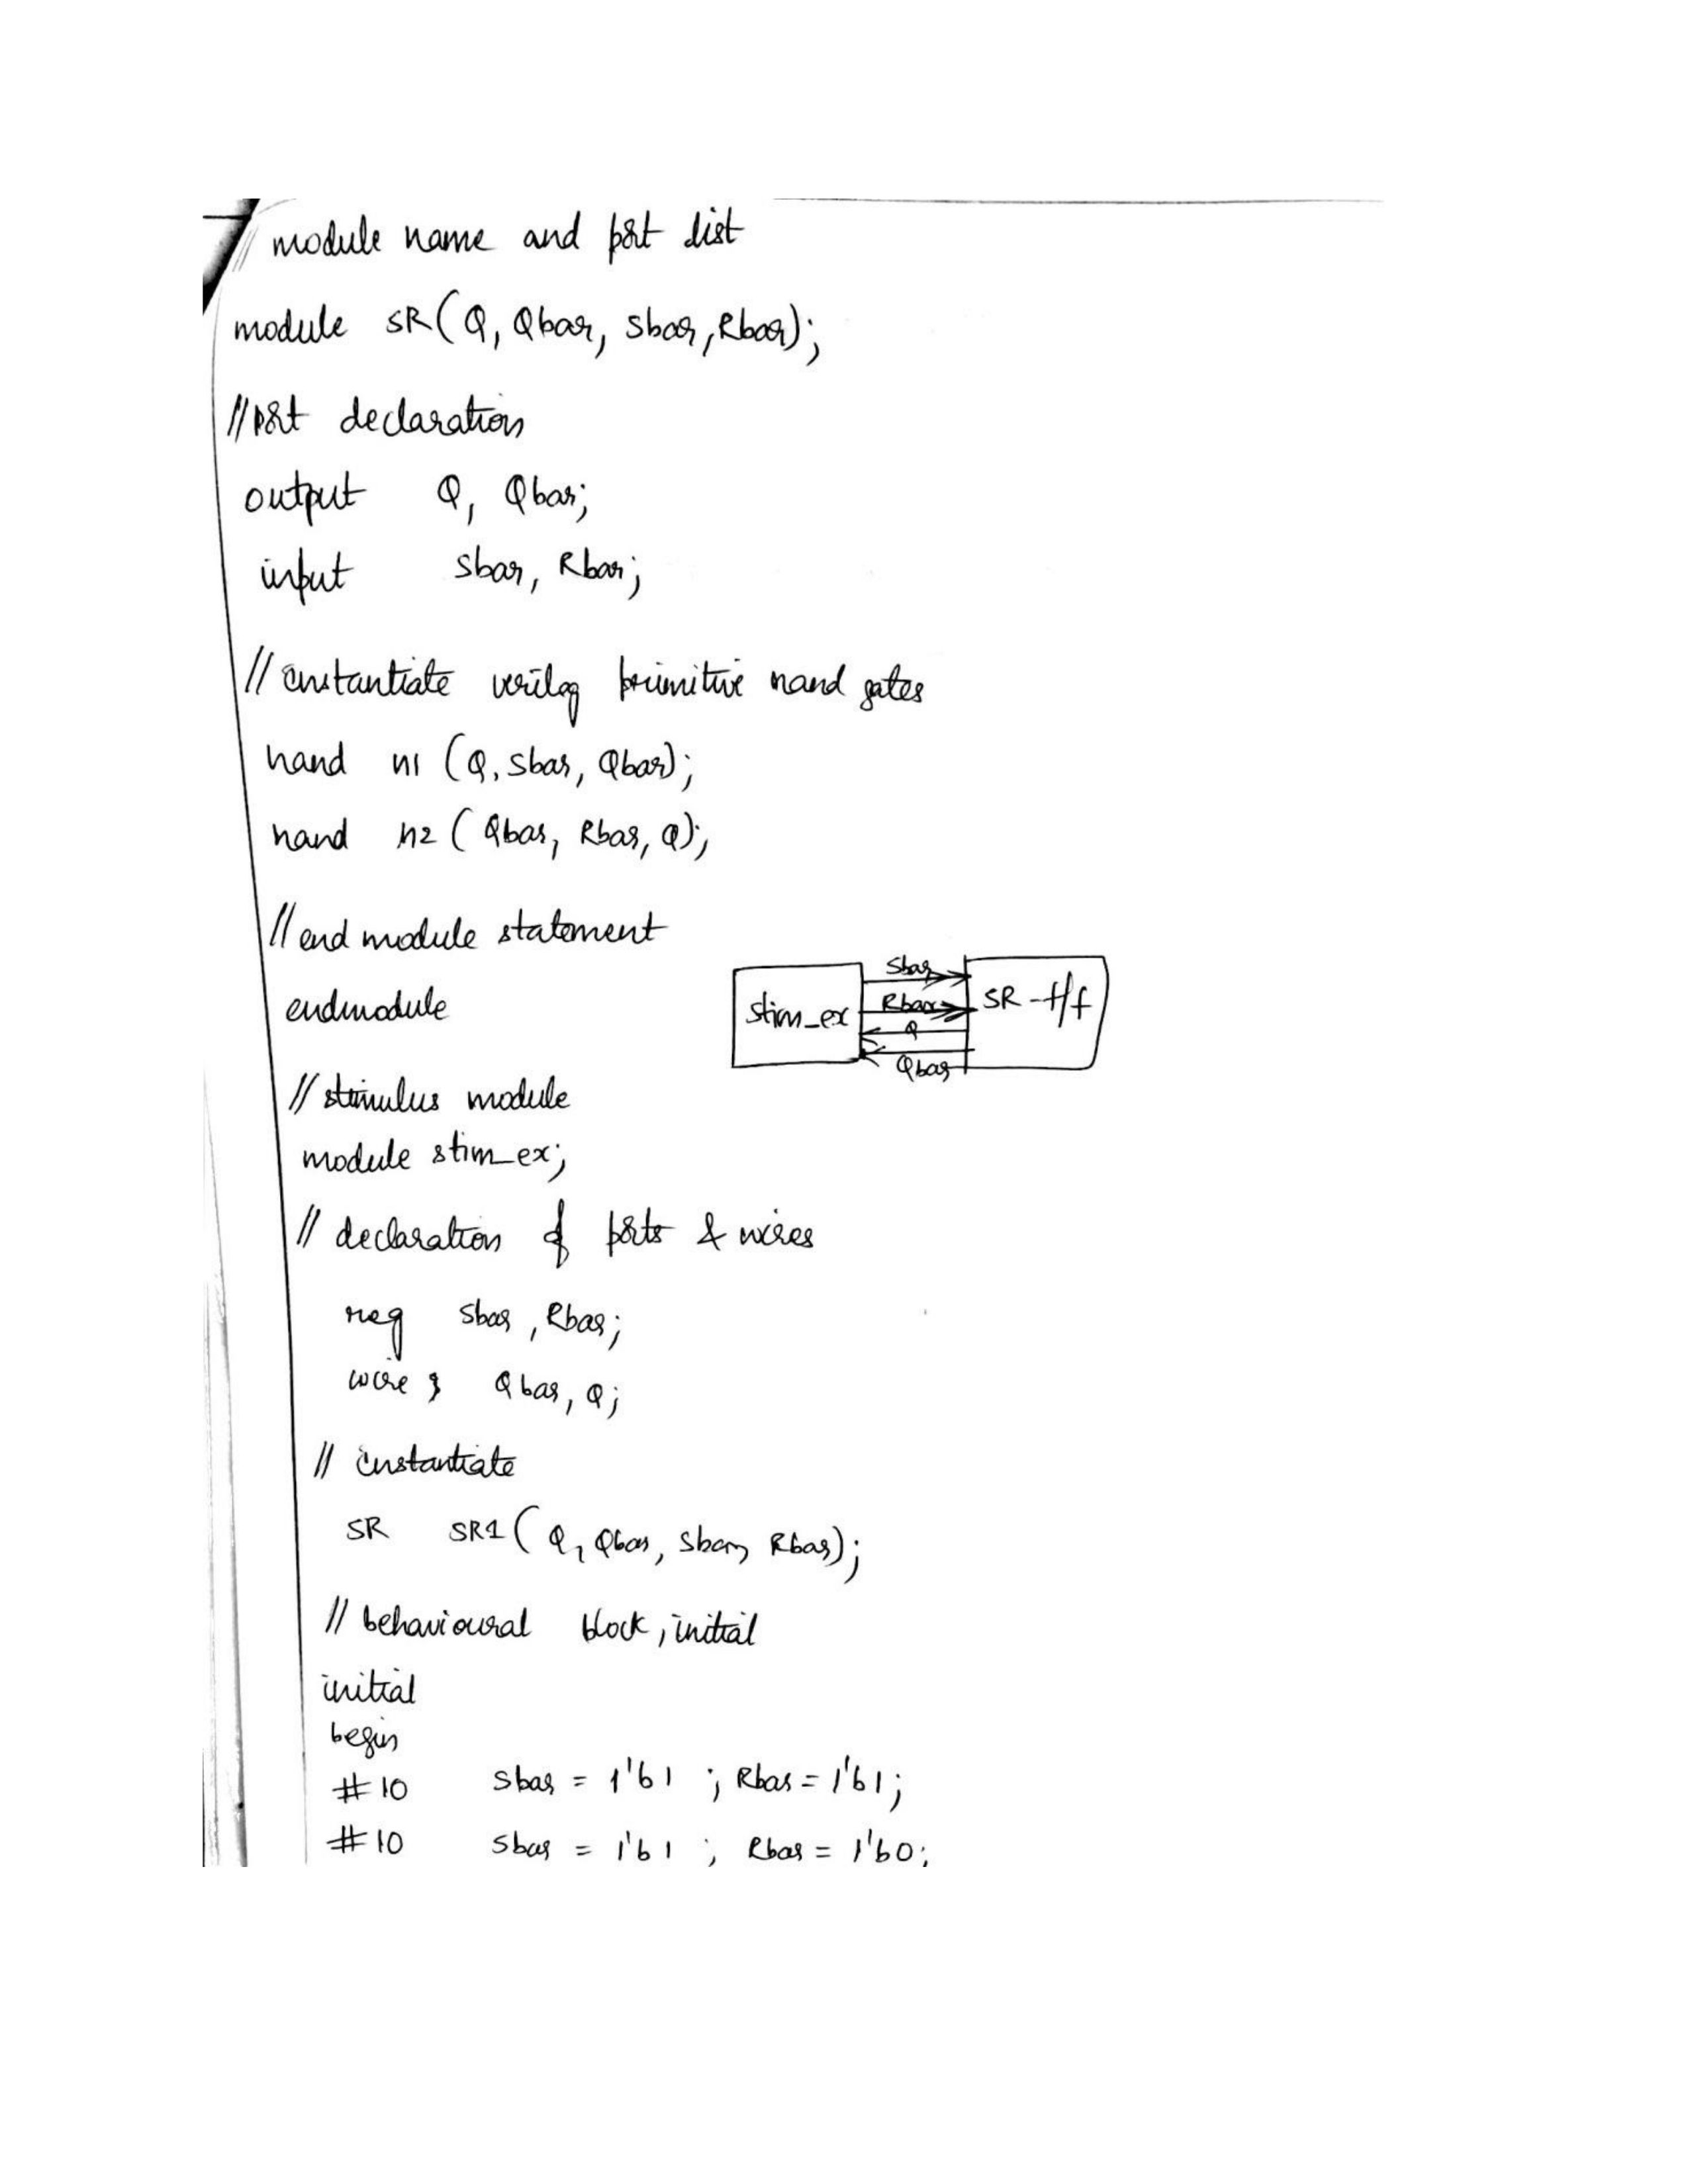 // module name and port list
module SR(Q, Qbar, Sbar, Rbar);
// port declaration
output Q, Qbar;
input Sbar, Rbar;
// instantiate verilog primitive nand gates
nand n1 (Q, Sbar, Qbar);
nand n2 (Qbar, Rbar, Q);
// end module statement
endmodule
stim_ex
Sbar
Rbar
Q
Qbar
SR-f/f
// stimulus module
module stim_ex;
// declaration of ports & wires
reg Sbar, Rbar;
wire Qbar, Q;
// instantiate
SR SR1 (Q, Qbar, Sbar, Rbar);
// behavioural block, initial
initial
begin
#10 Sbar = 1'b1 ; Rbar = 1'b1;
#10 Sbar = 1'b1 ; Rbar = 1'b0;